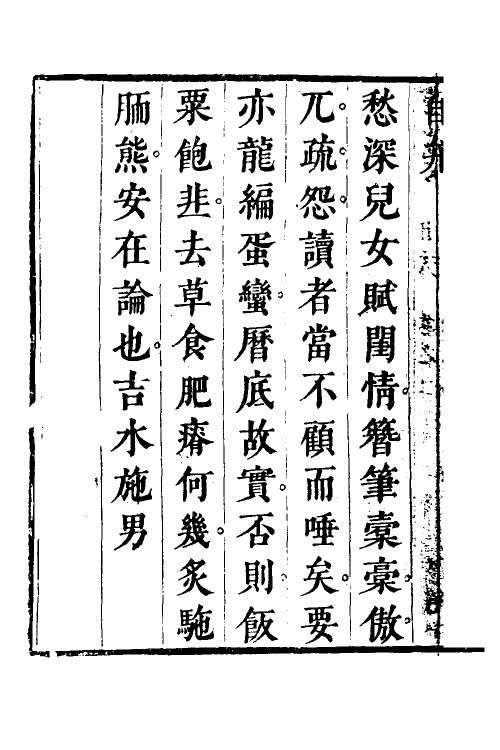 愁深兒女賦閨情。簪筆櫜橐。傲
兀。疏。怨。讀者當不顧而唾矣。要
亦龍編蛋蠻。曆底故實。否則飯
粟飽韭。去草食肥瘠何幾。炙駞
胹熊。安在論也。吉水施男